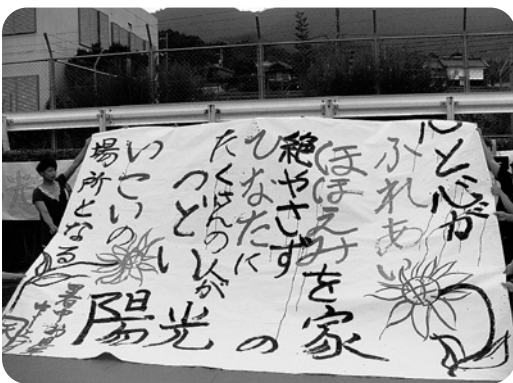 心と心が
ふれあい
ほほえみを
絶やさず
ひなたに
たくさんの人が
つどい
いこいの
場所となる
陽光の家
暑中